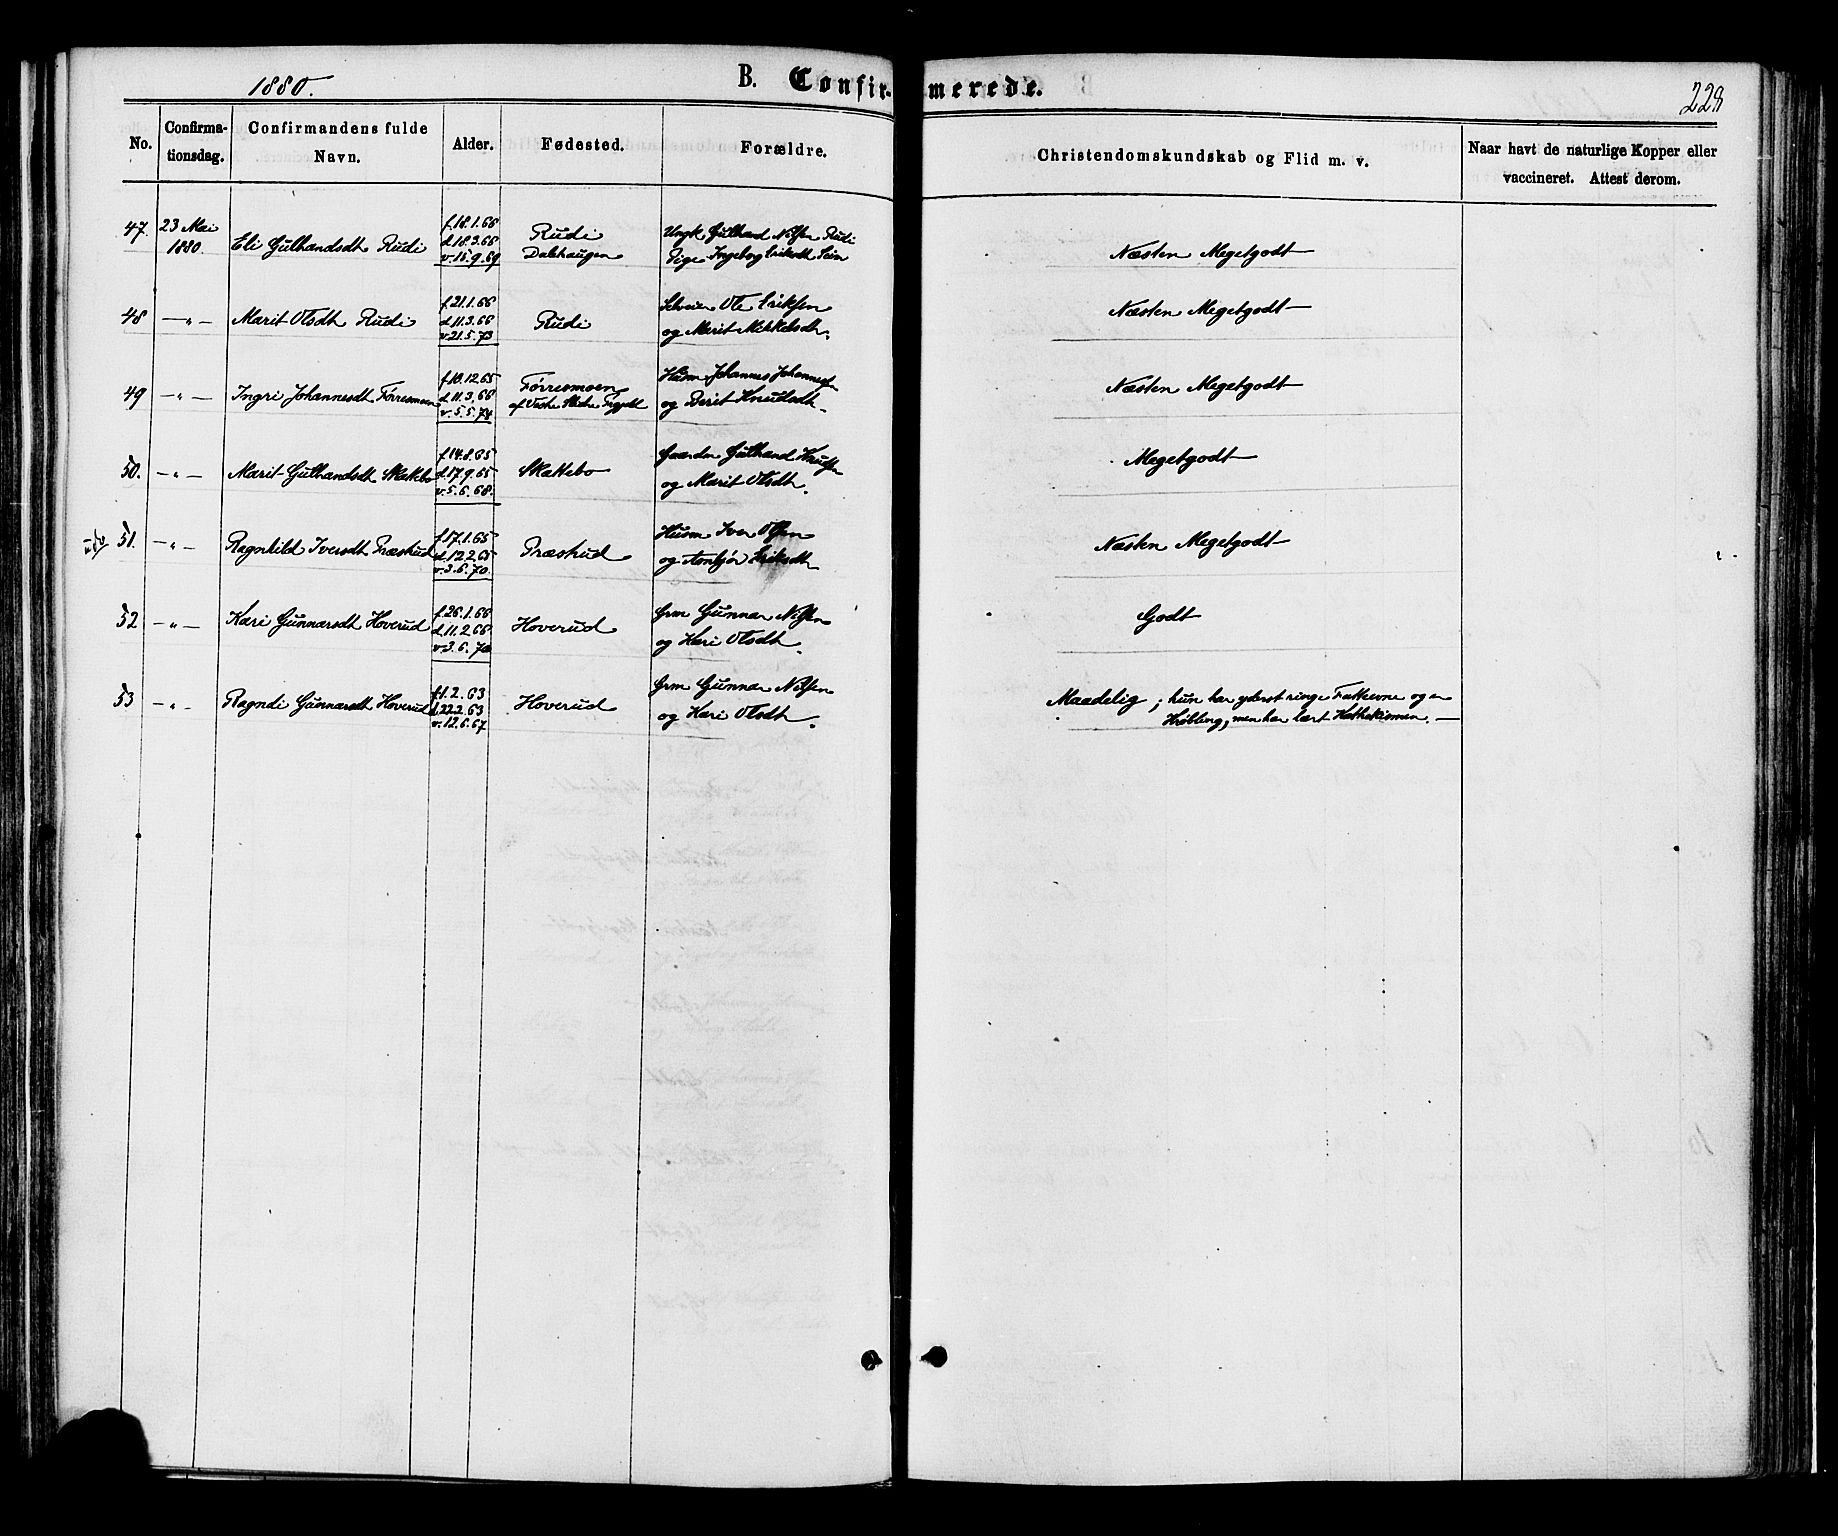 1880.
B. Confirmerede.
228
No.
Confirmationsdag.
Confirmandens fulde Navn.
Alder.
Fødested.
Forældre.
Christendomskundskab og Flid m. v.
Naar havt de naturlige Kopper eller vaccineret. Attest derom.
47. 23 Mai 1880. Eli Gulbrandsdt Rudi f. 18.1.66 d. 18.3.66 v. 15.9.69 Rudi Dalshaugen Ungk Gulbrand Nilsen Rudi Pige Ingeborg Eriksdt Sein Næsten Megetgodt
48 —„— Marit Olsdt Rudi f. 21.1.66 d. 11.3.66 v. 21.5.73 Rudi Selveier Ole Eriksen og Marit Mikkelsdt. Næsten Megetgodt
49 —„— Ingri Johannesdt Førresmoen f. 10.12.65 d. 11.3.66 v. 5.5.74 Førresmoen af Vestre Slidre Prgjeld Husm Johannes Johannesen og Berit Knudsdt. Næsten Megetgodt
50. —„— Marit Gulbrandsdt Skattebo f. 14.8.65 d. 17.9.65 v. 5.6.68. Skattebo Gaardm Gulbrand Knudsen og Marit Olsdt. Megetgodt
udv 51. —„— Ragnhild Iversdt Præstrud f. 17.1.65 d. 12.2.65 v. 3.6.70. Præstrud Husm Iver Olsen og Anbjør Eriksdt Næsten Megetgodt
52 —„— Kari Gunnarsdt Hoverud f. 26.1.66 d. 11.2.66 v. 3.6.70 Hoverud Grm Gunnar Nilsen og Kari Olsdt. Godt
53 —„— Ragndi Gunnarsdt Hoverud f. 1.2.63 d. 22.2.63 v. 12.6.67 Hoverud Grm Gunnar Nilsen og Kari Olsdt. Maadelig; hun har yderst ringe Fatteevne og er Krøbling, men har lært Kathekismen. —